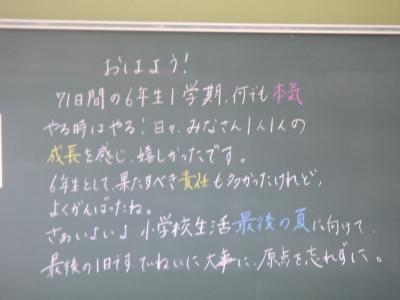 おはよう!
71日間の6年生1学期、何でも本気
やる時はやる!日々、みなさん1人1人の
成長を感じ、嬉しかったです。
6年生として、果たすべき責任も多かったけれど、
よくがんばったね。
さぁいよいよ小学校生活最後の夏に向けて、
最後の1日です。ていねいに大事に、原点を忘れずに。